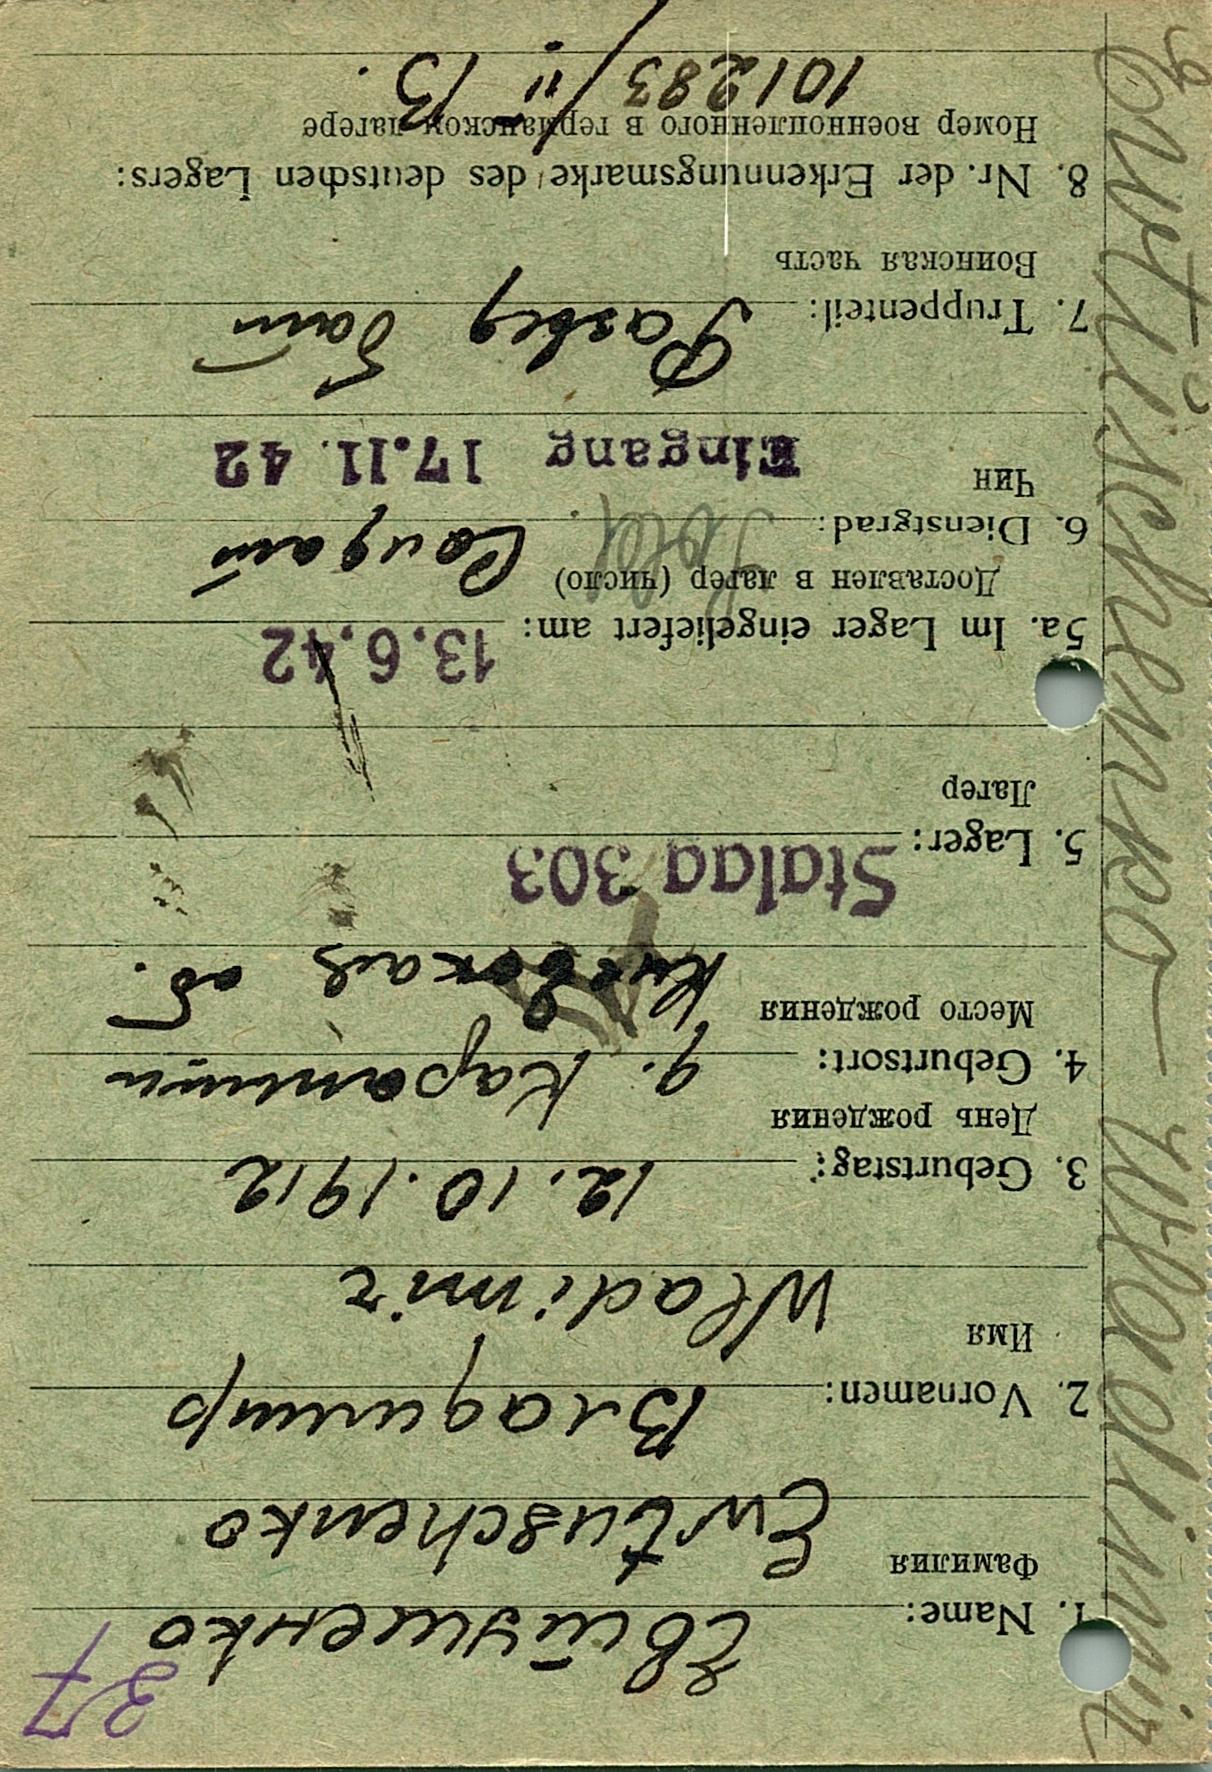 37
1. Name: Евтушенко
Фамилия
Ewtuschenko
2. Vornamen: Владимир
Имя
Wladimir
3. Geburtstag: 12.10.1912
День рождения
4. Geburtsort: д. Карапиши
Место рождения
Киевская об.
5. Lager: Stalag 303
Лагер
5a. Im Lager eingeliefert am: 13.6.42
Доставлен в лагер (число)
6. Dienstgrad: Солдат
Sold.
Чин
Eingang 17.11.42
7. Truppenteil: Развед бат
Воинская часть
8. Nr. der Erkennungsmarke des deutschen Lagers:
Номер военнопленного в германском лагере
101283/II B.
Wladimir